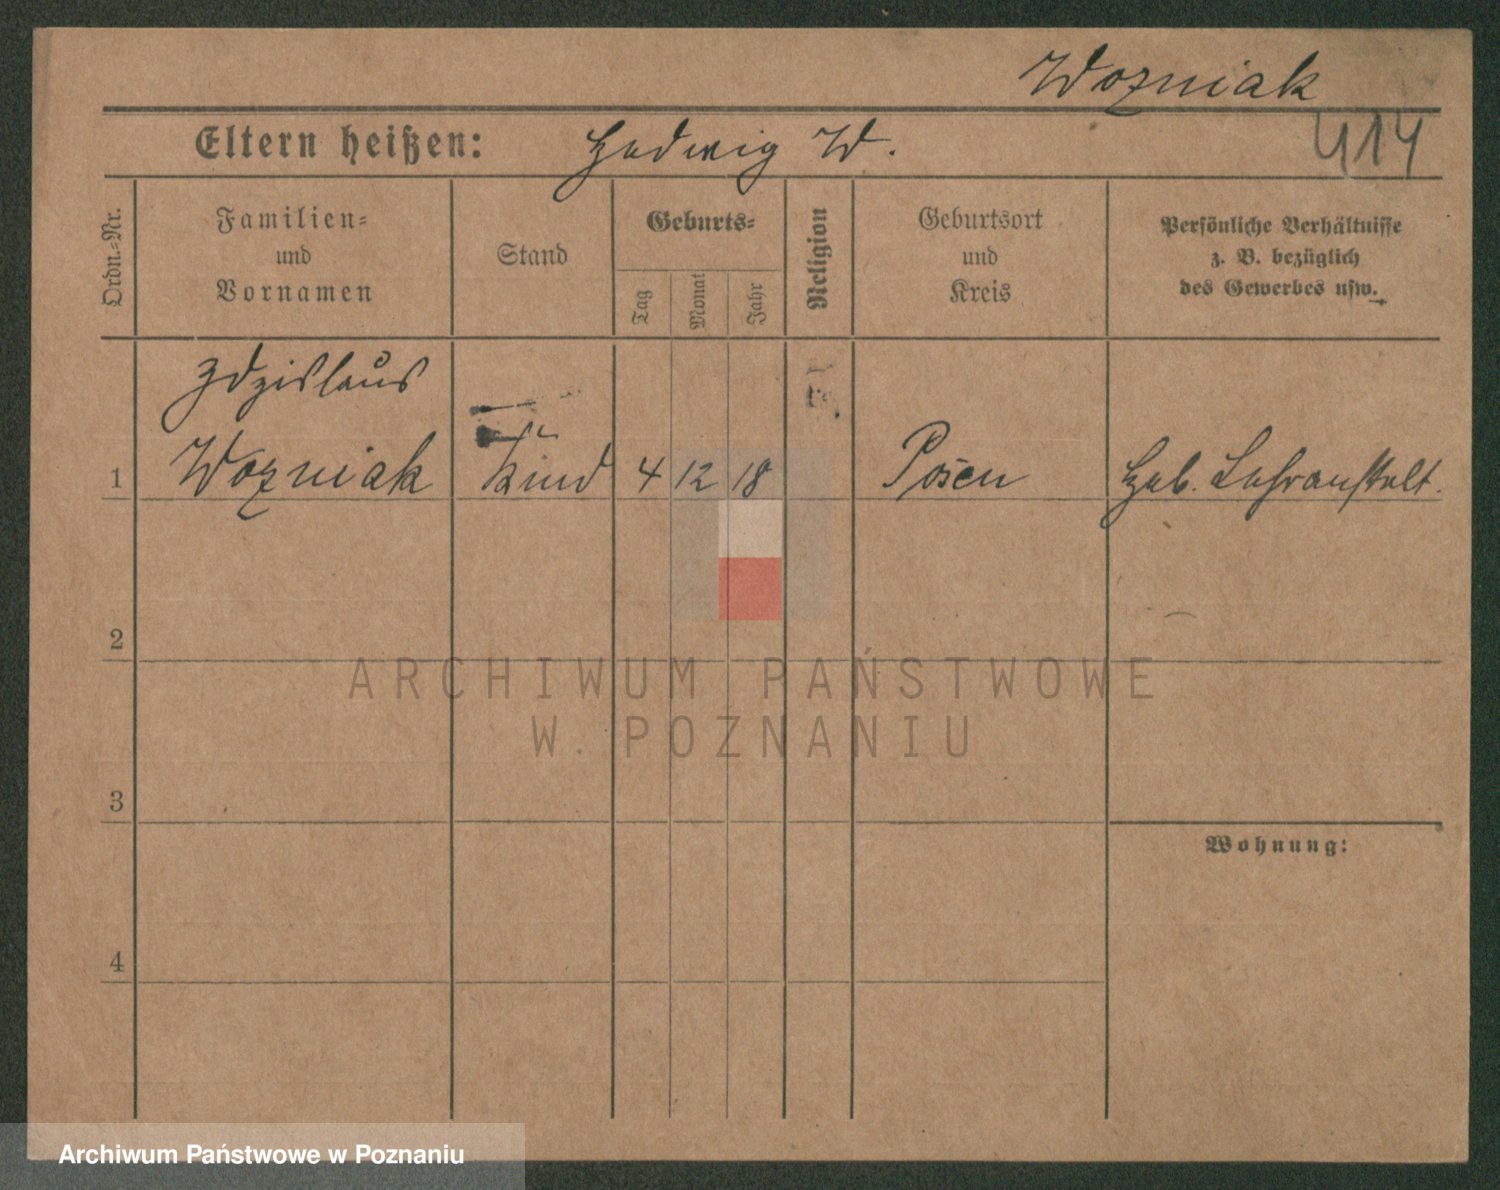 Wozniak
414
Eltern heißen: Hedwig W.
Ordn.=Nr.
Familien=
und
Vornamen
Stand
Geburts=
Tag
Monat
Jahr
Religion
Geburtsort
und
Kreis
Persönliche Verhältnisse
z. B. bezüglich
des Gewerbes usw.
Zdzislaus
1 Wozniak Kind 4 12 18 Posen Heb. Lehranstalt.
2
ARCHIWUM PAŃSTWOWE
W POZNANIU
3
Wohnung:
4
Archiwum Państwowe w Poznaniu